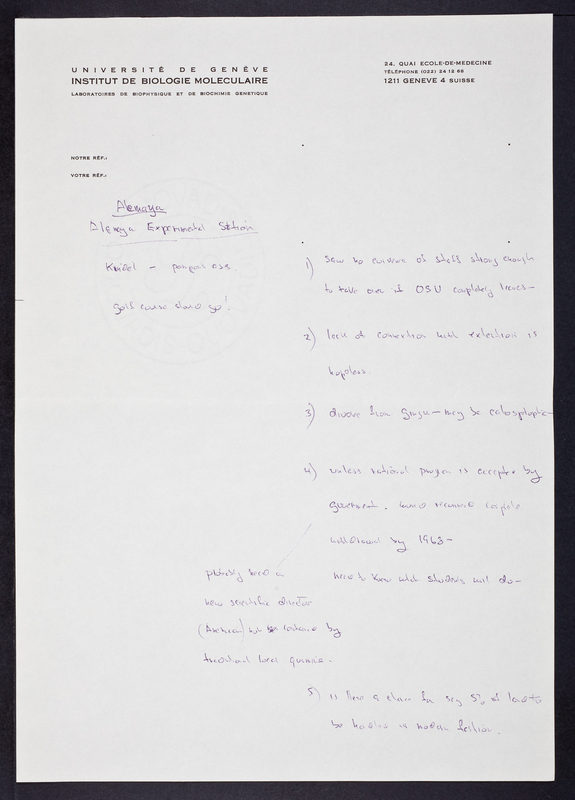 UNIVERSITÉ DE GENÈVE
INSTITUT DE BIOLOGIE MOLECULAIRE
LABORATOIRES DE BIOPHYSIQUE ET DE BIOCHIMIE GENETIQUE
24, QUAI ECOLE-DE-MEDECINE
TÉLÉPHONE (022) 24 12 66
1211 GENEVE 4 SUISSE
NOTRE RÉF.:
VOTRE RÉF.:
Alemaya
Alemaya Experimental Station
golf course should go!
1) Saw no evidence of staff strong enough
to take over if OSU completely leaves—
2) lack of connection with extension is
hopeless.
3) divorce from may be catastrophic—
4) unless national program is accepted by
government. complete
withdrawal by 1963—
need to know what students will do—
probably need a
new scientific director
(American) but by
local
5) is there a for say 5% of land to
be in modern fashion.